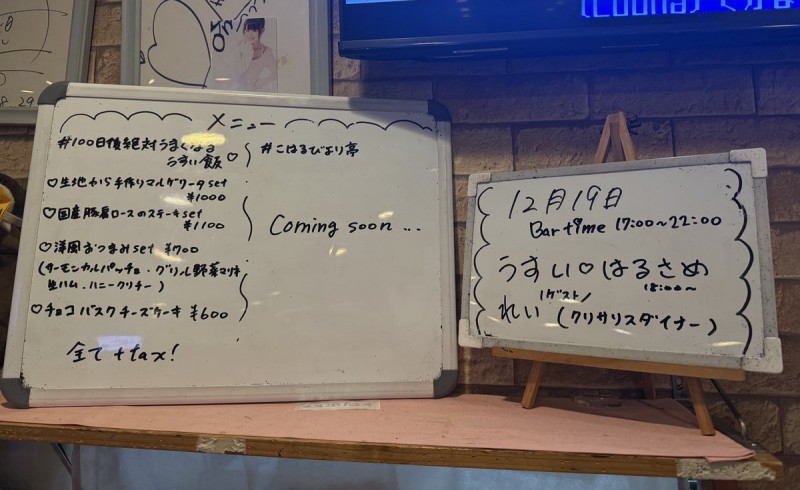 メニュー
#100日後絶対うまくなる
うすい飯♡
♡生地から手作りマルゲリータset
¥1000
♡国産豚肩ロースのステーキset
¥1100
♡洋風おつまみset ¥700
(サーモンカルパッチョ・グリル野菜マリネ
生ハム・ハニークリチー)
♡チョコバスクチーズケーキ ¥600
全て+tax!
#こはるびより亭
Coming soon...
12月19日
Bar time 17:00~22:00
うすい♡はるさめ
18:00~
\ゲスト/
れい(クリサリスダイナー)